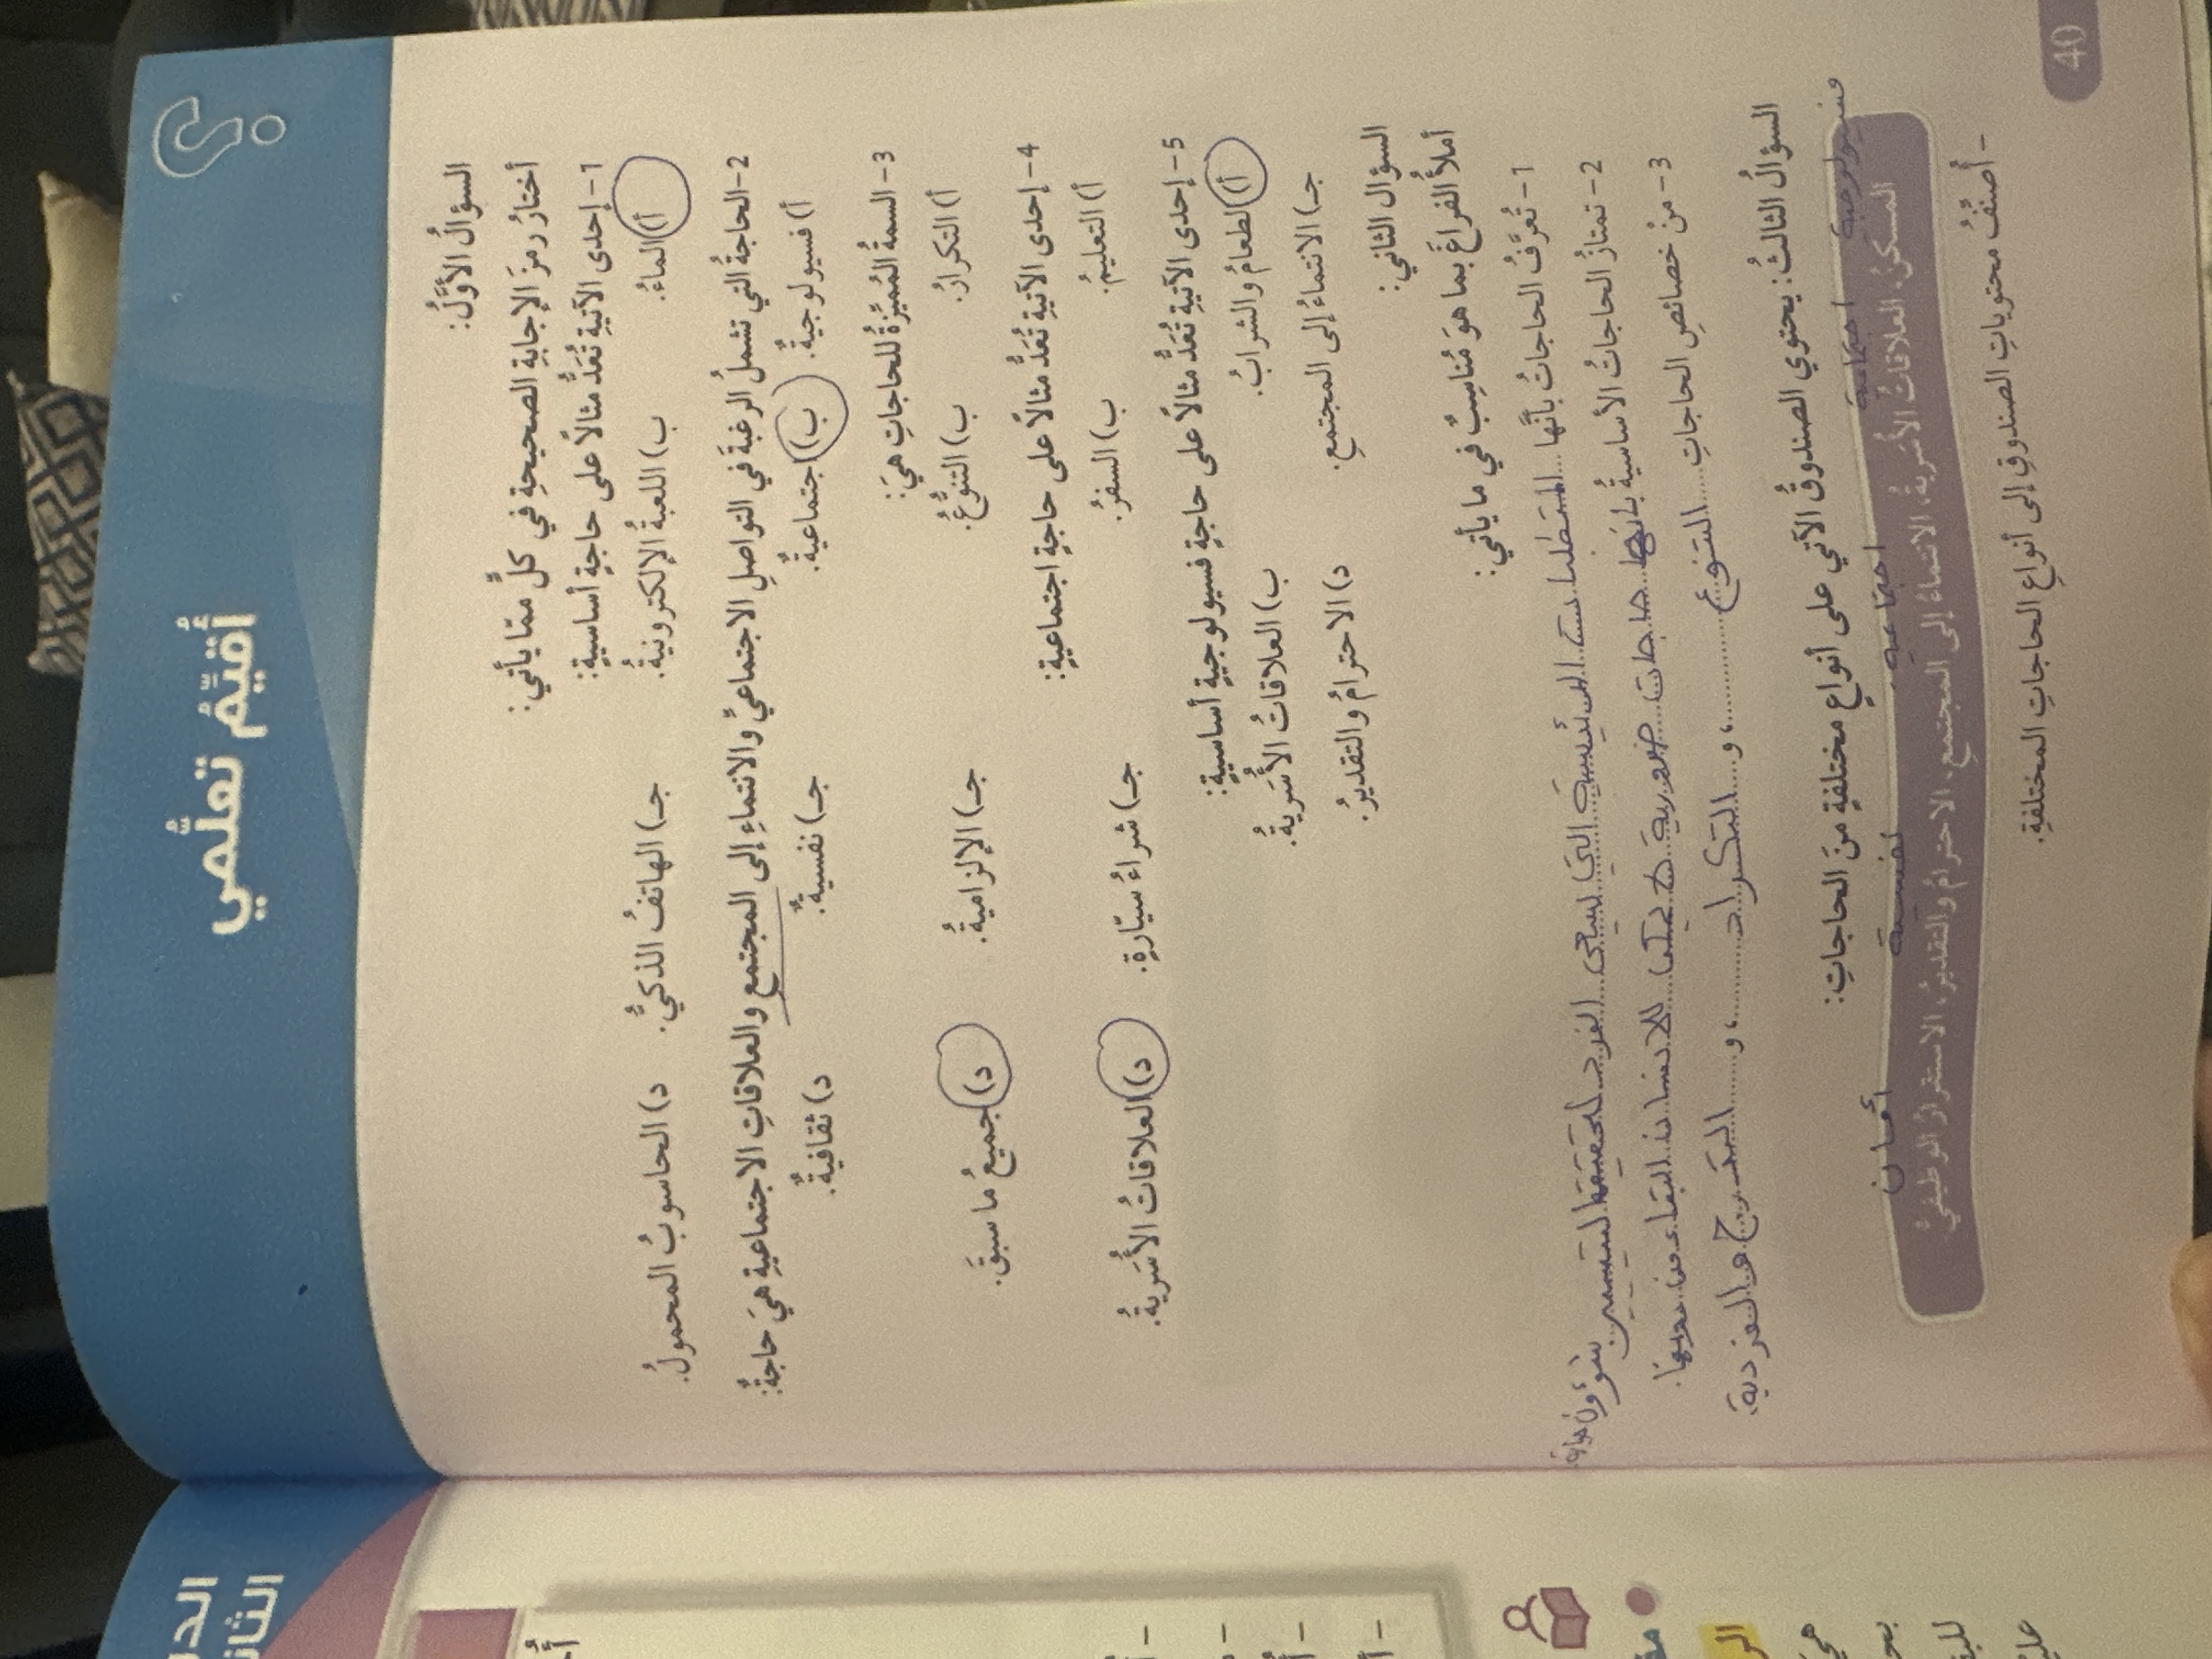 أُقيّمُ تعلُّمي
السؤالُ الأوَّلُ:
أختارُ رمزَ الإجابةِ الصحيحةِ في كلٍّ ممّا يأتي:
1- إحدى الآتيةِ تُعَدُّ مثالًا على حاجةٍ أساسيةٍ:
أ) الماءُ. ب) اللعبةُ الإلكترونيةُ. جـ) الهاتفُ الذكيُّ. د) الحاسوبُ المحمولُ.
2- الحاجةُ التي تشملُ الرغبةَ في التواصلِ الاجتماعيِّ والانتماءِ إلى المجتمعِ والعلاقاتِ الاجتماعيةِ هيَ حاجةٌ:
أ) فسيولوجيةٌ. ب) اجتماعيةٌ. جـ) نفسيةٌ. د) ثقافيةٌ.
3- السمةُ المُميِّزةُ للحاجاتِ هيَ:
أ) التكرارُ. ب) التنوُّعُ. جـ) الإلزاميةُ. د) جميعُ ما سبقَ.
4- إحدى الآتيةِ تُعَدُّ مثالًا على حاجةٍ اجتماعيةٍ:
أ) التعليمُ. ب) السفرُ. جـ) شراءُ سيّارةٍ. د) العلاقاتُ الأُسَريةُ.
5- إحدى الآتيةِ تُعَدُّ مثالًا على حاجةٍ فسيولوجيةٍ أساسيةٍ:
أ) الطعامُ والشرابُ. ب) العلاقاتُ الأُسَريةُ.
جـ) الانتماءُ إلى المجتمعِ. د) الاحترامُ والتقديرُ.
السؤالُ الثاني:
أملأُ الفراغَ بما هوَ مُناسِبٌ في ما يأتي:
1- تُعرَّفُ الحاجاتُ بأنَّها المتطلبات الرئيسية التي يسعى الفرد لتحقيقها لتسيير شؤون حياته
2- تمتازُ الحاجاتُ الأساسيةُ بأنها حاجات ضرورية لا يمكن للإنسان البقاء من دونها.
3- منْ خصائصِ الحاجاتِ التنوع، و التكرار، و التدرج والفردية.
السؤالُ الثالثُ: يحتوي الصندوقُ الآتي على أنواعٍ مختلفةٍ منَ الحاجاتِ:
فسيولوجية اجتماعية اجتماعية نفسية أمان
المسكنُ، العلاقاتُ الأُسَريةُ، الانتماءُ إلى المجتمعِ، الاحترامُ والتقديرُ، الاستقرارُ الوظيفيُّ
- أُصنِّفُ محتوياتِ الصندوقِ إلى أنواعِ الحاجاتِ المختلفةِ.
40